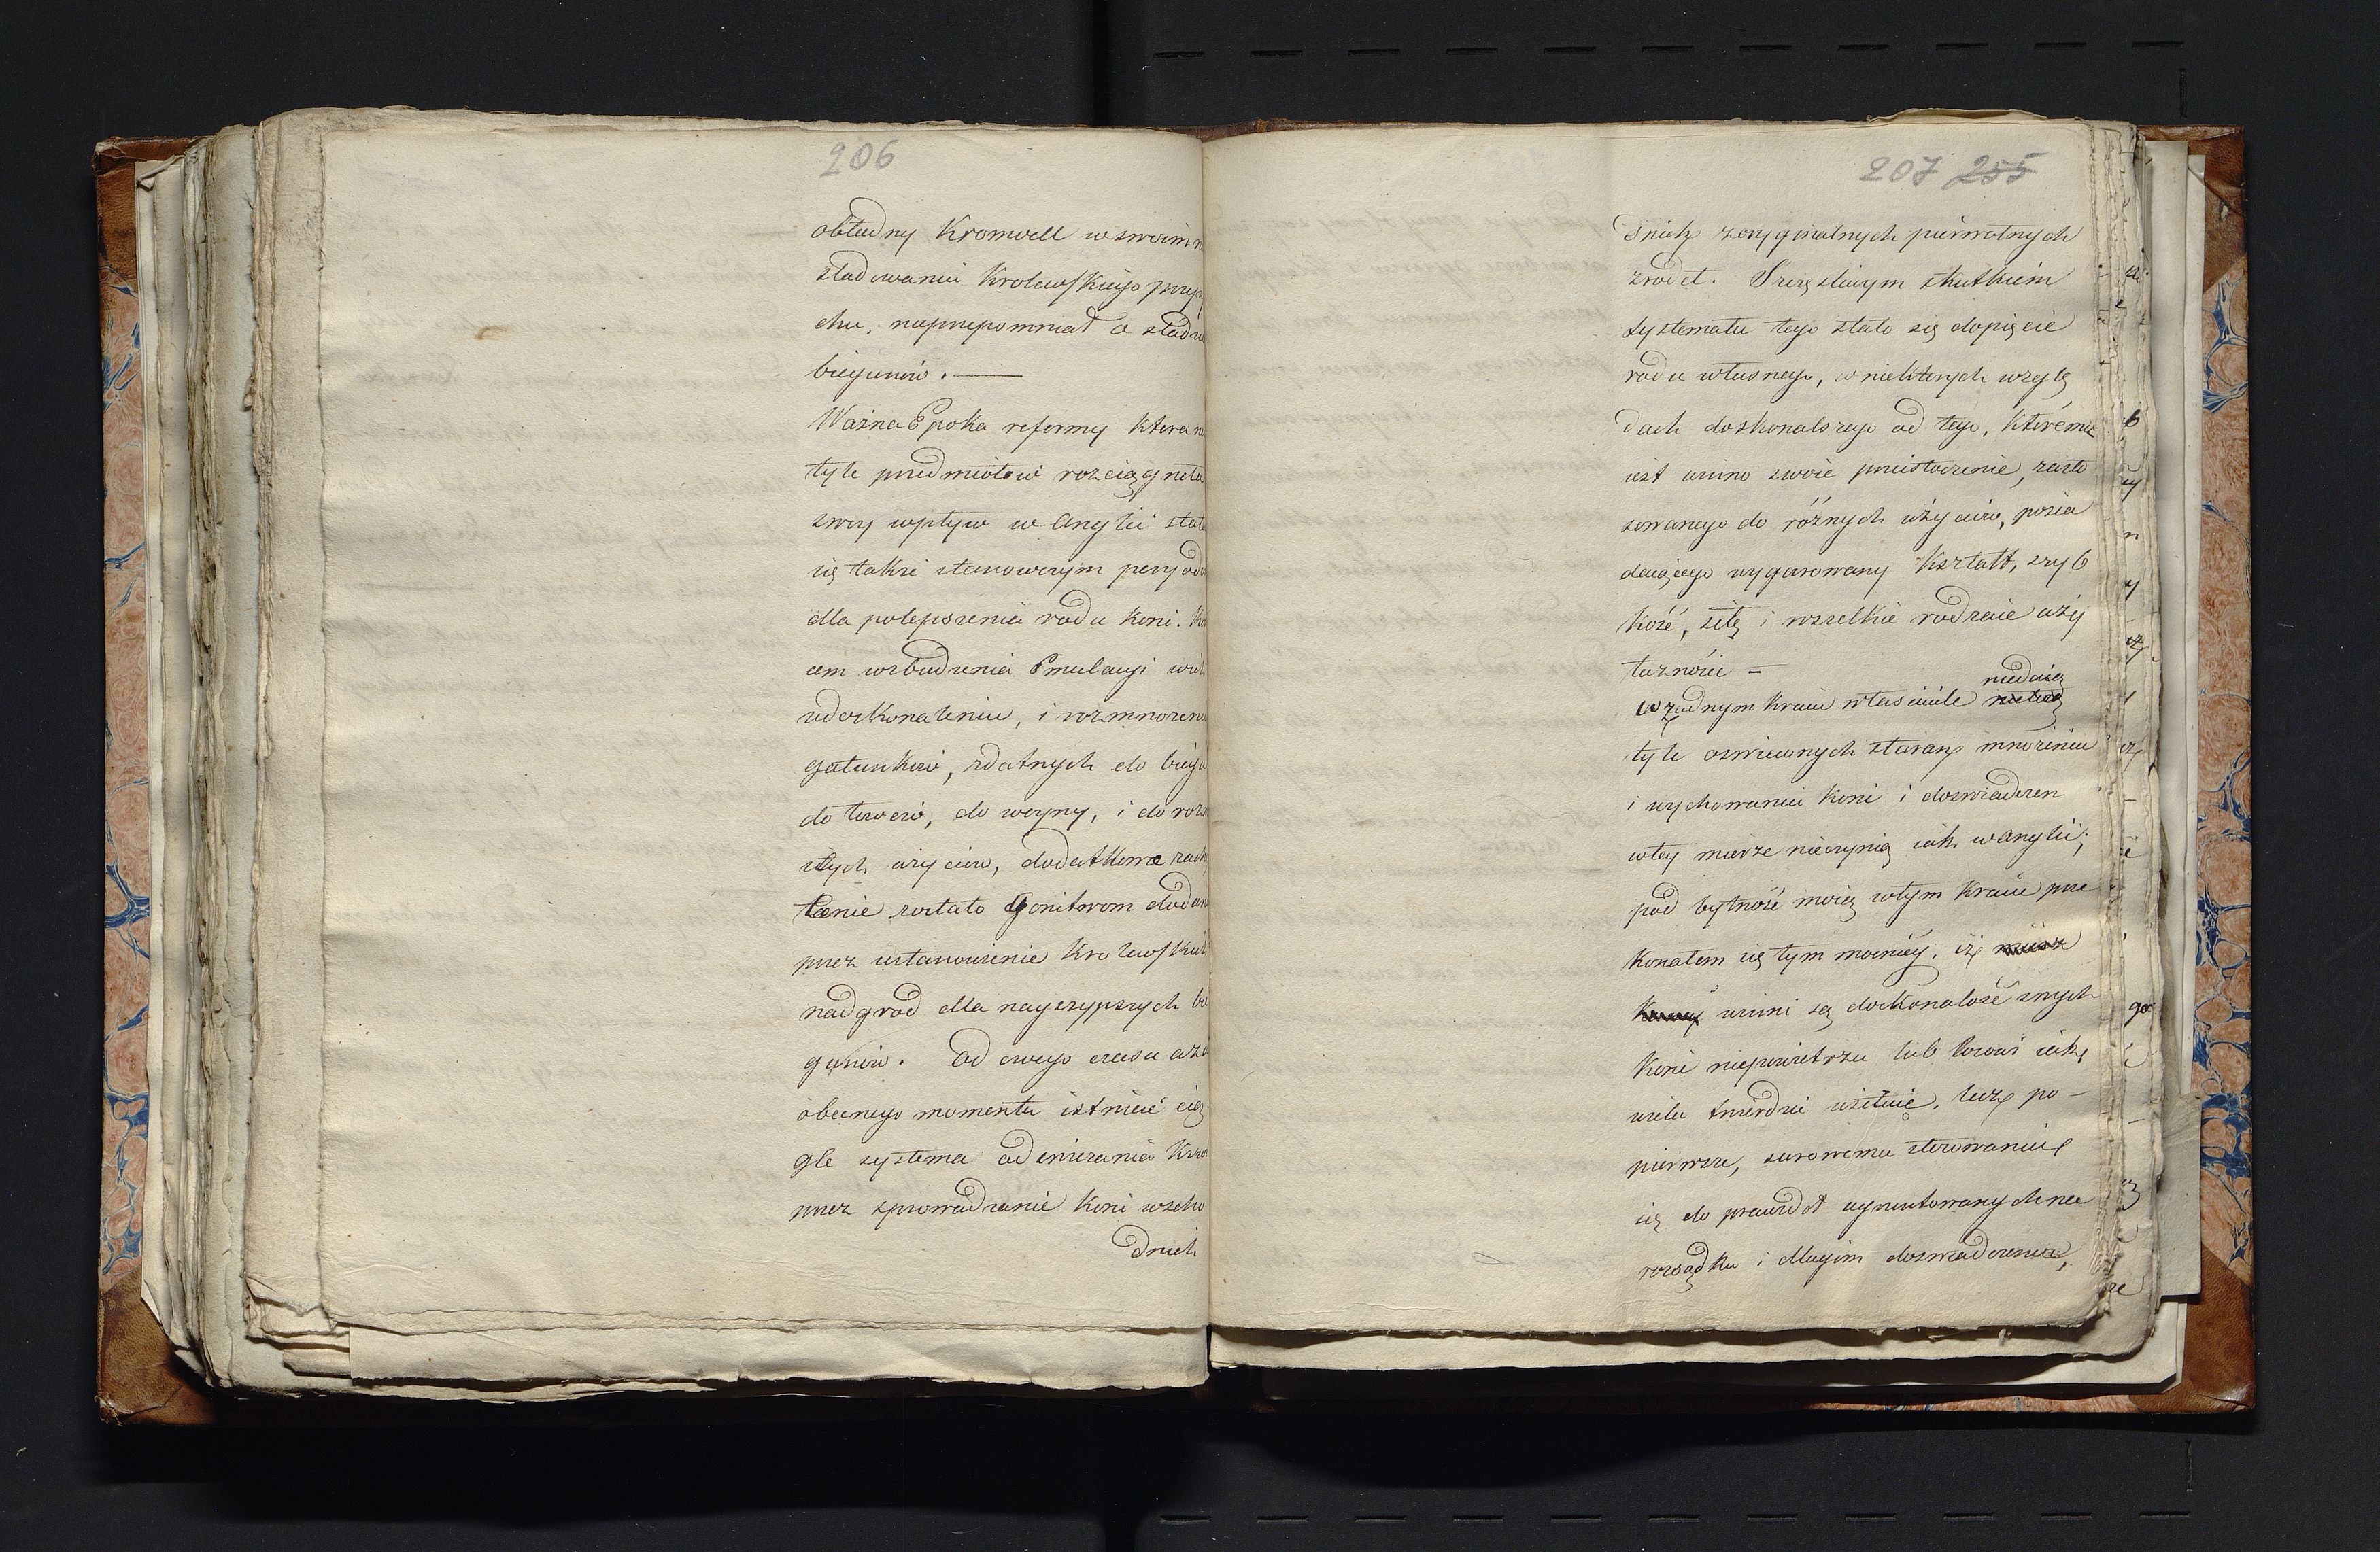 206
obłudny Kromvell w swoim n
sladowaniu Krolewskiego przep
chu, nieprzepomniał o stad
biegunów. —
Ważna Epoka reformy ktora n
tyle przedmiotow rozciągneła
swoy wpływ w Anglii stała
się także stanowczym peryod
dla polepszenia rodu koni. K
cem wzbudzenia Emulacyi w
udoskonaleniu, i rozmnożeniu
gatunków, zdatnych do biegu
do łowów, do woyny, i do roz
itych użyciow, dodatkowe zach
cenie zostało Gonitwom dodan
przez ustanowienie Krolewskich
nadgrod dla nayszypszych bi
gunów. Od owego czasu aż d
obecnego momentu istnieie cią
gle systema odswieżania Krwi
przez sprowadzanie koni wscho
dnich
207 255
dnich zoryginalnych pierwotnych
zrodeł. Szczęsliwym skutkiem
systematu tego stało się dopięcie
rodu własnego, w niektorych wzglę
dach doskonalszego od tego, któremu
iest winno swoie przeistoczenie, zasto
sowanego do różnych użyciow, posia
daiącego wygorowany Kształt, szyb
kość, siłę i wszelkie rodzaie uży
teczności —
niedaią
w żadnym kraiu własciciele
tyle oswieconych starań mnożeniu
i wychowaniu koni i doswiadczen
wtey mierze nieczynią iak w Anglii;
pod bytność moię wtym Kraiu prze
konałem się tym mocniey, iż
winni są doskonałość swych
koni niepowietrzu lub łowow iak
wielu twierdzi usilnie, lecz po-
pierwsze, surowemu stosowaniu
się do prawideł ugruntowanych na
rozsądku i długim doswiadczeniu,